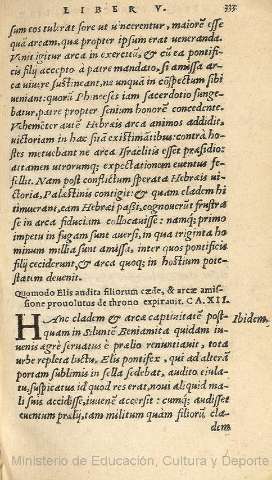 LIBER V. 333
sum eos tubrat fore ut vĩcrentur, maiorẽ esse
quã arcam, qua propter ipsum erat veneranda.
Venit igitur arca in exercitũ, & cũ ea pontifi-
cis filij accepto à patre mandato, si amissa ar-
ca vivere sustineant, ne unquã in cõspectum sibi
veniant: quorũ Phineeses iam sacerdotio funge-
batur, patre propter senium honorẽ concedente.
Vehemẽter autẽ Hebræis arca animos addidit,
victoriam in hac sitã existimãtibus: contrà ho-
stes metuebant ne arca Israëlitis esset præsidio:
attamen utrorumq; expectationem eventus fe-
fellit. Nam post conflictum sperata Hebræis vi-
ctoria, Palestinis contigit: & quam cladem hi
timuerant, eam Hebræi passi, cognoverũt frustrà
se in arca fiduciam collocavisse: namq; primo
impetu in fugam sunt aversi, in qua triginta ho-
minum millia sunt amissa, inter quos pontificis
filij ceciderunt, & arca quoq; in hostium pote-
statem devenit.
Quomodo Elis audita filiorum cæde, & arcæ amis-
sione prouolutus de throno expirauit. CA. XII.
HAnc cladem & arcæ captivitatẽ post- Ibidem.
quam in Siluntẽ Beniamita quidam iu-
venis ægrè servatus è prælio renuntiavit, tota
urbe repleta luctu, Elis pontifex, qui ad alterã
portam sublimis in sella sedebat, audito eiula-
tu, suspicatus id quod res erat, novi aliquid ma-
li suis accidisse, iuvenẽ accersit: cumq; audisset
eventum prælij, tam militum quam filiorũ cla-
dem
Ministerio de Educación, Cultura y Deporte